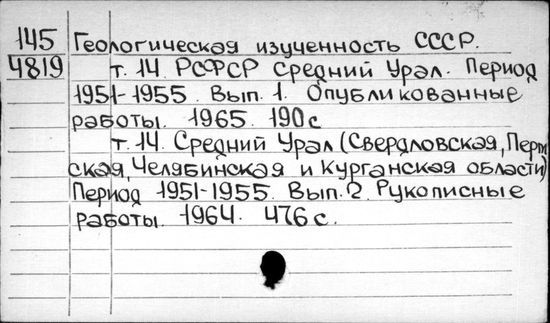 145 Геологическая изученность СССР.
4819 т. 14. РСФСР Средний Урал. Период
1951-1955. Вып. 1. Опубликованные
работы. 1965. 190 с
т. 14. Средний Урал (Свердловская, Перм
ская, Челябинская и Курганская области)
Период 1951-1955. Вып. 2. Рукописные
работы. 1964. 476 с.